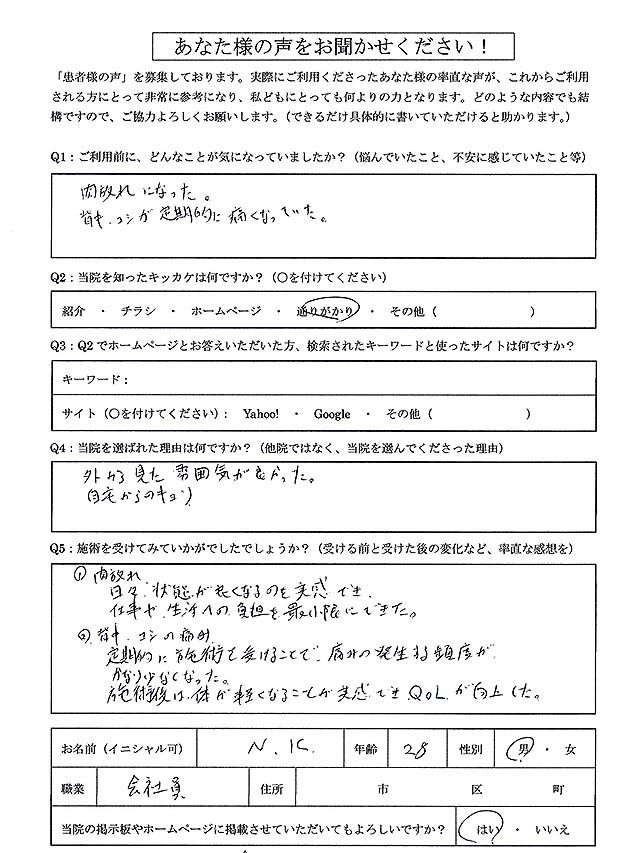 あなた様の声をお聞かせください！
「患者様の声」を募集しております。実際にご利用くださったあなた様の率直な声が、これからご利用
される方にとって非常に参考になり、私どもにとっても何よりの力となります。どのような内容でも結
構ですので、ご協力よろしくお願いします。（できるだけ具体的に書いていただけると助かります。）
Q1：ご利用前に、どんなことが気になっていましたか？（悩んでいたこと、不安に感じていたこと等）
肉放れになった。
背中、コシが定期的に痛くなっていた。
Q2：当院を知ったキッカケは何ですか？（〇を付けてください）
紹介 ・ チラシ ・ ホームページ ・ 通りがかり ・ その他（ ）
Q3：Q2でホームページとお答えいただいた方、検索されたキーワードと使ったサイトは何ですか？
キーワード：
サイト（〇を付けてください）： Yahoo! ・ Google ・ その他（ ）
Q4：当院を選ばれた理由は何ですか？（他院ではなく、当院を選んでくださった理由）
外から見た雰囲気が良かった。
（自宅からのキョリ）
Q5：施術を受けてみていかがでしたでしょうか？（受ける前と受けた後の変化など、率直な感想を）
① 肉放れ
日々、状態が良くなるのを実感でき、
仕事や生活への負担を最小限にできた。
② 背中、コシの痛み
定期的に施術を受けることで、痛みの発生する頻度が
かなり少なくなった。
施術後は体が軽くなることが実感できQOLが向上した。
お名前（イニシャル可） N.K. 年齢 28 性別 男 ・ 女
職業 会社員 住所 市 区 町
当院の掲示板やホームページに掲載させていただいてもよろしいですか？ はい ・ いいえ